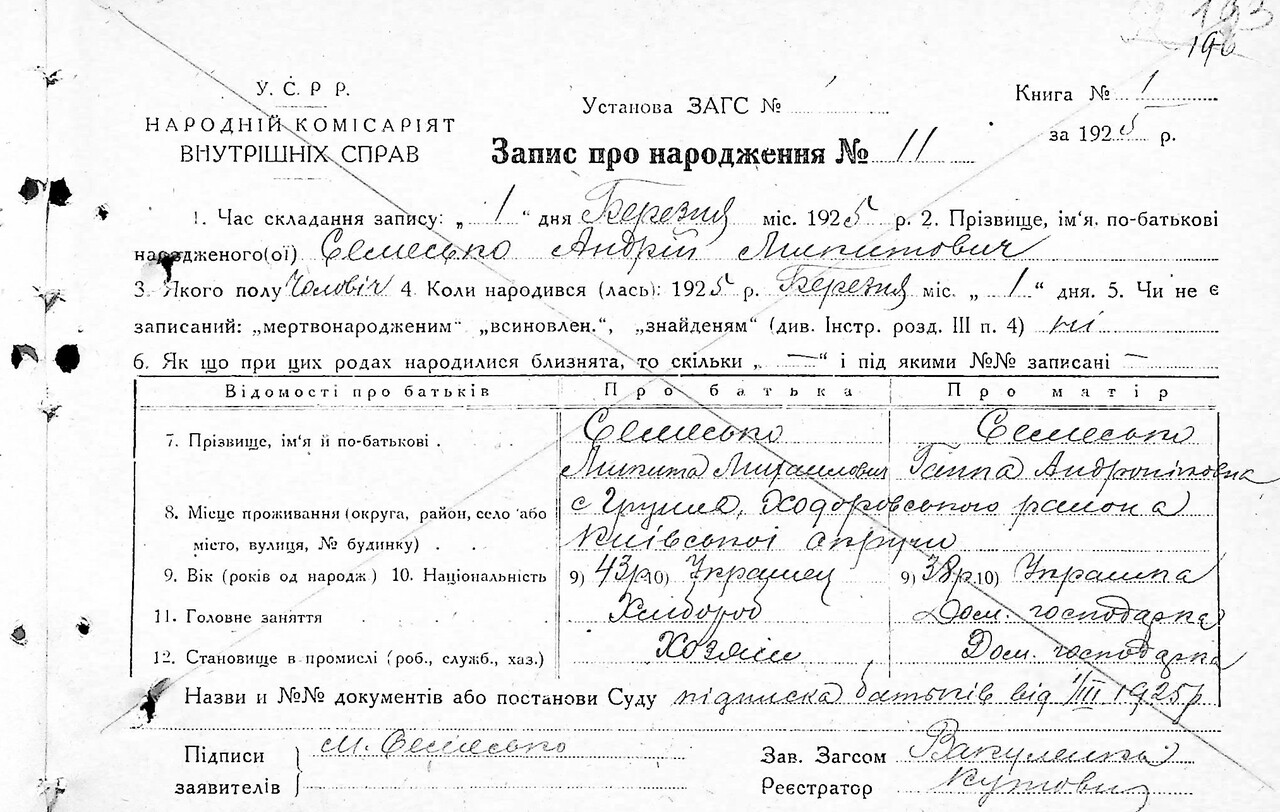 193
196
У. С. Р Р.
НАРОДНІЙ КОМІСАРІЯТ
ВНУТРІШНІХ СПРАВ
Установа ЗАГС №
Книга № 1
за 1925 р.
Запис про народження № 11
1. Час складання запису: „ 1 “ дня Березня міс. 1925 р. 2. Прізвище, ім'я. по-батькові
народженого(ої) Семесько Андрій Микитович
3. Якого полу Чоловіч 4. Коли народився (лась): 1925 р. Березня міс. „ 1 “ дня. 5. Чи не є
записаний: „мертвонародженим“ „всиновлен.“, „знайденям“ (див. Інстр. розд. III п. 4) ні
6. Як що при цих родах народилися близнята, то скільки „ — “ і під якими №№ записані —
Відомості про батьків Про батька Про матір
7. Прізвище, ім'я й по-батькові . Семесько Семесько
Микита Михаилович Ганна Андроніковна
8. Місце проживання (округа, район, село або с Грушів, Ходоровського района
місто, вулиця, № будинку) . . Київської округи
9. Вік (років од народж ) 10. Національність 9) 43р 10) Украінец 9) 38р. 10) Украінка
11. Головне заняття Хлібороб Дом. господарка
12. Становище в промислі (роб., служб., хаз.) Хозяїн Дом. господарка
Назви и №№ документів або постанови Суду підписка батьків від 1/III 1925р.
Підписи
заявителів
М. Семесько
Зав. Загсом Вакуленко
Реєстратор